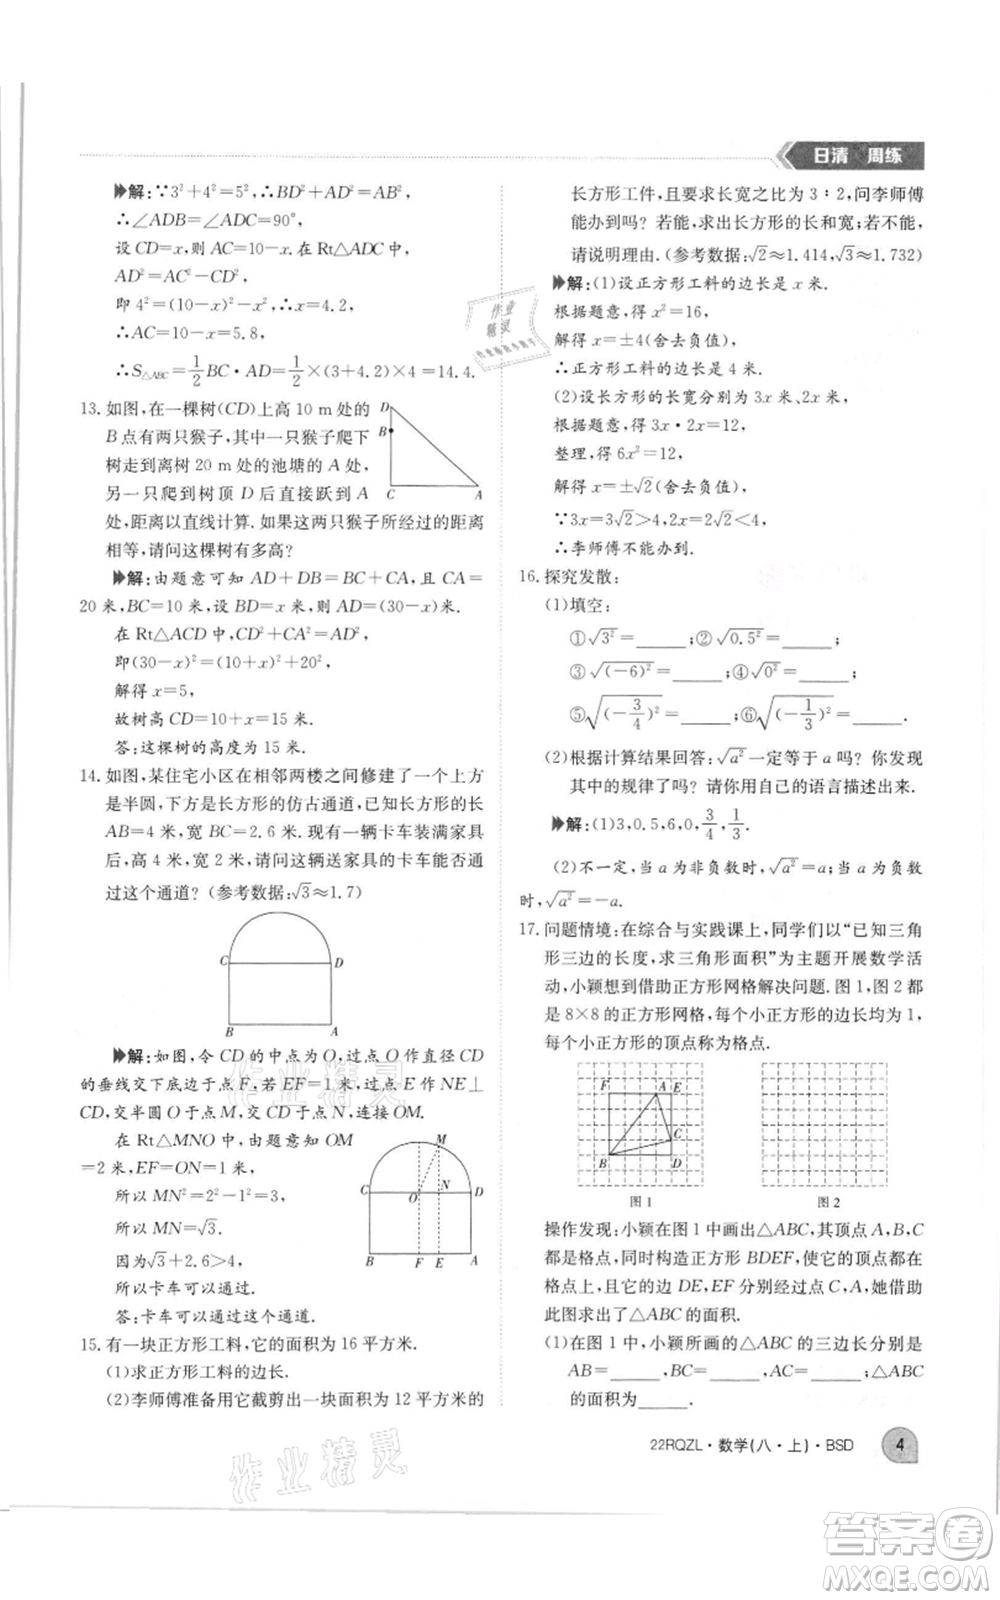 日清 周练
解:∵3²+4²=5²,∴BD²+AD²=AB²,
∴∠ADB=∠ADC=90°,
设 CD=x,则 AC=10-x.在 Rt△ADC 中,
AD²=AC²-CD²,
即 4²=(10-x)²-x²,∴x=4.2,
∴AC=10-x=5.8,
∴S△ABC=1/2 BC·AD=1/2×(3+4.2)×4=14.4.
13.如图,在一棵树(CD)上高 10 m 处的
B 点有两只猴子,其中一只猴子爬下
树走到离树 20 m 处的池塘的 A 处,
另一只爬到树顶 D 后直接跃到 A
处,距离以直线计算.如果这两只猴子所经过的距离
相等,请问这棵树有多高?
D
B
C
A
解:由题意可知 AD+DB=BC+AC,且 CA=
20 米,BC=10 米,设 BD=x 米,AD=(30-x)米.
在 Rt△ACD 中,CD²+CA²=AD²,
即(30-x)²=(10+x)²+20²,
解得 x=5,
故树高 CD=10+x=15 米.
答:这棵树的高度为 15 米.
14.如图,某住宅小区在相邻两楼之间修建了一个上方
是半圆,下方是长方形的仿古通道,已知长方形的长
AB=4 米,宽 BC=2.6 米.现有一辆卡车装满家具
后,高 4 米,宽 2 米,请问这辆送家具的卡车能否通
过这个通道?(参考数据:√3≈1.7)
C
D
B
A
解:如图,令 CD 的中点为 O,过点 O 作直径 CD
的垂线交下底边于点 F,若 EF=1 米,过点 E 作 NE⊥
CD,交半圆 O 于点 M,交 CD 于点 N,连接 OM.
在 Rt△MNO 中,由题意知 OM
=2 米,EF=ON=1 米,
所以 MN²=2²-1²=3,
所以 MN=√3.
因为√3+2.6>4,
所以卡车可以通过.
答:卡车可以通过这个通道.
M
C
O
N
D
B
F
E
A
15.有一块正方形工料,它的面积为 16 平方米.
(1)求正方形工料的边长.
(2)李师傅准备用它截剪出一块面积为 12 平方米的
长方形工件,且要求长宽之比为 3∶2,问李师傅
能办到吗?若能,求出长方形的长和宽;若不能,
请说明理由.(参考数据:√2≈1.414,√3≈1.732)
解:(1)设正方形工料的边长是 x 米.
根据题意,得 x²=16,
解得 x=±4(舍去负值),
∴正方形工料的边长是 4 米.
(2)设长方形的长宽分别为 3x 米、2x 米,
根据题意,得 3x·2x=12,
整理,得 6x²=12,
解得 x=±√2(舍去负值),
∵3x=3√2>4,2x=2√2<4,
∴李师傅不能办到.
16.探究发散:
(1)填空:
①√3²=____;②√0.5²=____;
③√(-6)²=____;④√0²=____;
⑤√(-3/4)²=____;⑥√(-1/3)²=____.
(2)根据计算结果回答:√a²一定等于 a 吗?你发现
其中的规律了吗?请你用自己的语言描述出来.
解:(1)3,0.5,6,0,3/4,1/3.
(2)不一定,当 a 为非负数时,√a²=a;当 a 为负数
时,√a²=-a.
17.问题情境:在综合与实践课上,同学们以“已知三角
形三边的长度,求三角形面积”为主题开展数学活
动,小颖想到借助正方形网格解决问题.图 1,图 2 都
是 8×8 的正方形网格,每个小正方形的边长均为 1,
每个小正方形的顶点称为格点.
F
A
E
C
B
D
图 1
图 2
操作发现:小颖在图 1 中画出△ABC,其顶点 A,B,C
都是格点,同时构造正方形 BDEF,使它的顶点都在
格点上,且它的边 DE,EF 分别经过点 C,A,她借助
此图求出了△ABC 的面积.
(1)在图 1 中,小颖所画的△ABC 的三边长分别是
AB=____,BC=____,AC=____,△ABC
的面积为____.
22RQZL·数学(八·上)·BSD
4
作业精灵
作业精灵
作业精灵
答案卷
MXQE.COM